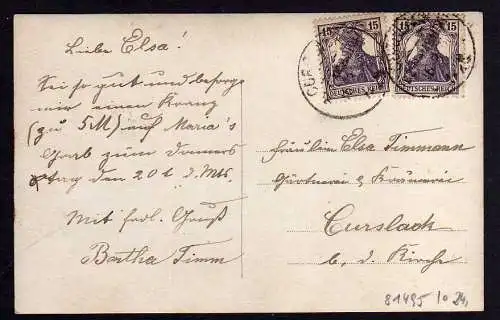 Liebe Elsa!
Sei so gut und besorge
mir einen Kranz
(zu 5M) auf Maria's
Grab zum Donners
tag den 20t d. Mts.
Mit frdl. Gruß
Bertha Timm
15 15
DEUTSCHES REICH DEUTSCHES REICH
Fräulein Elsa Timmann
Gärtnerei &
Curslack
b. d. Kirche
81495